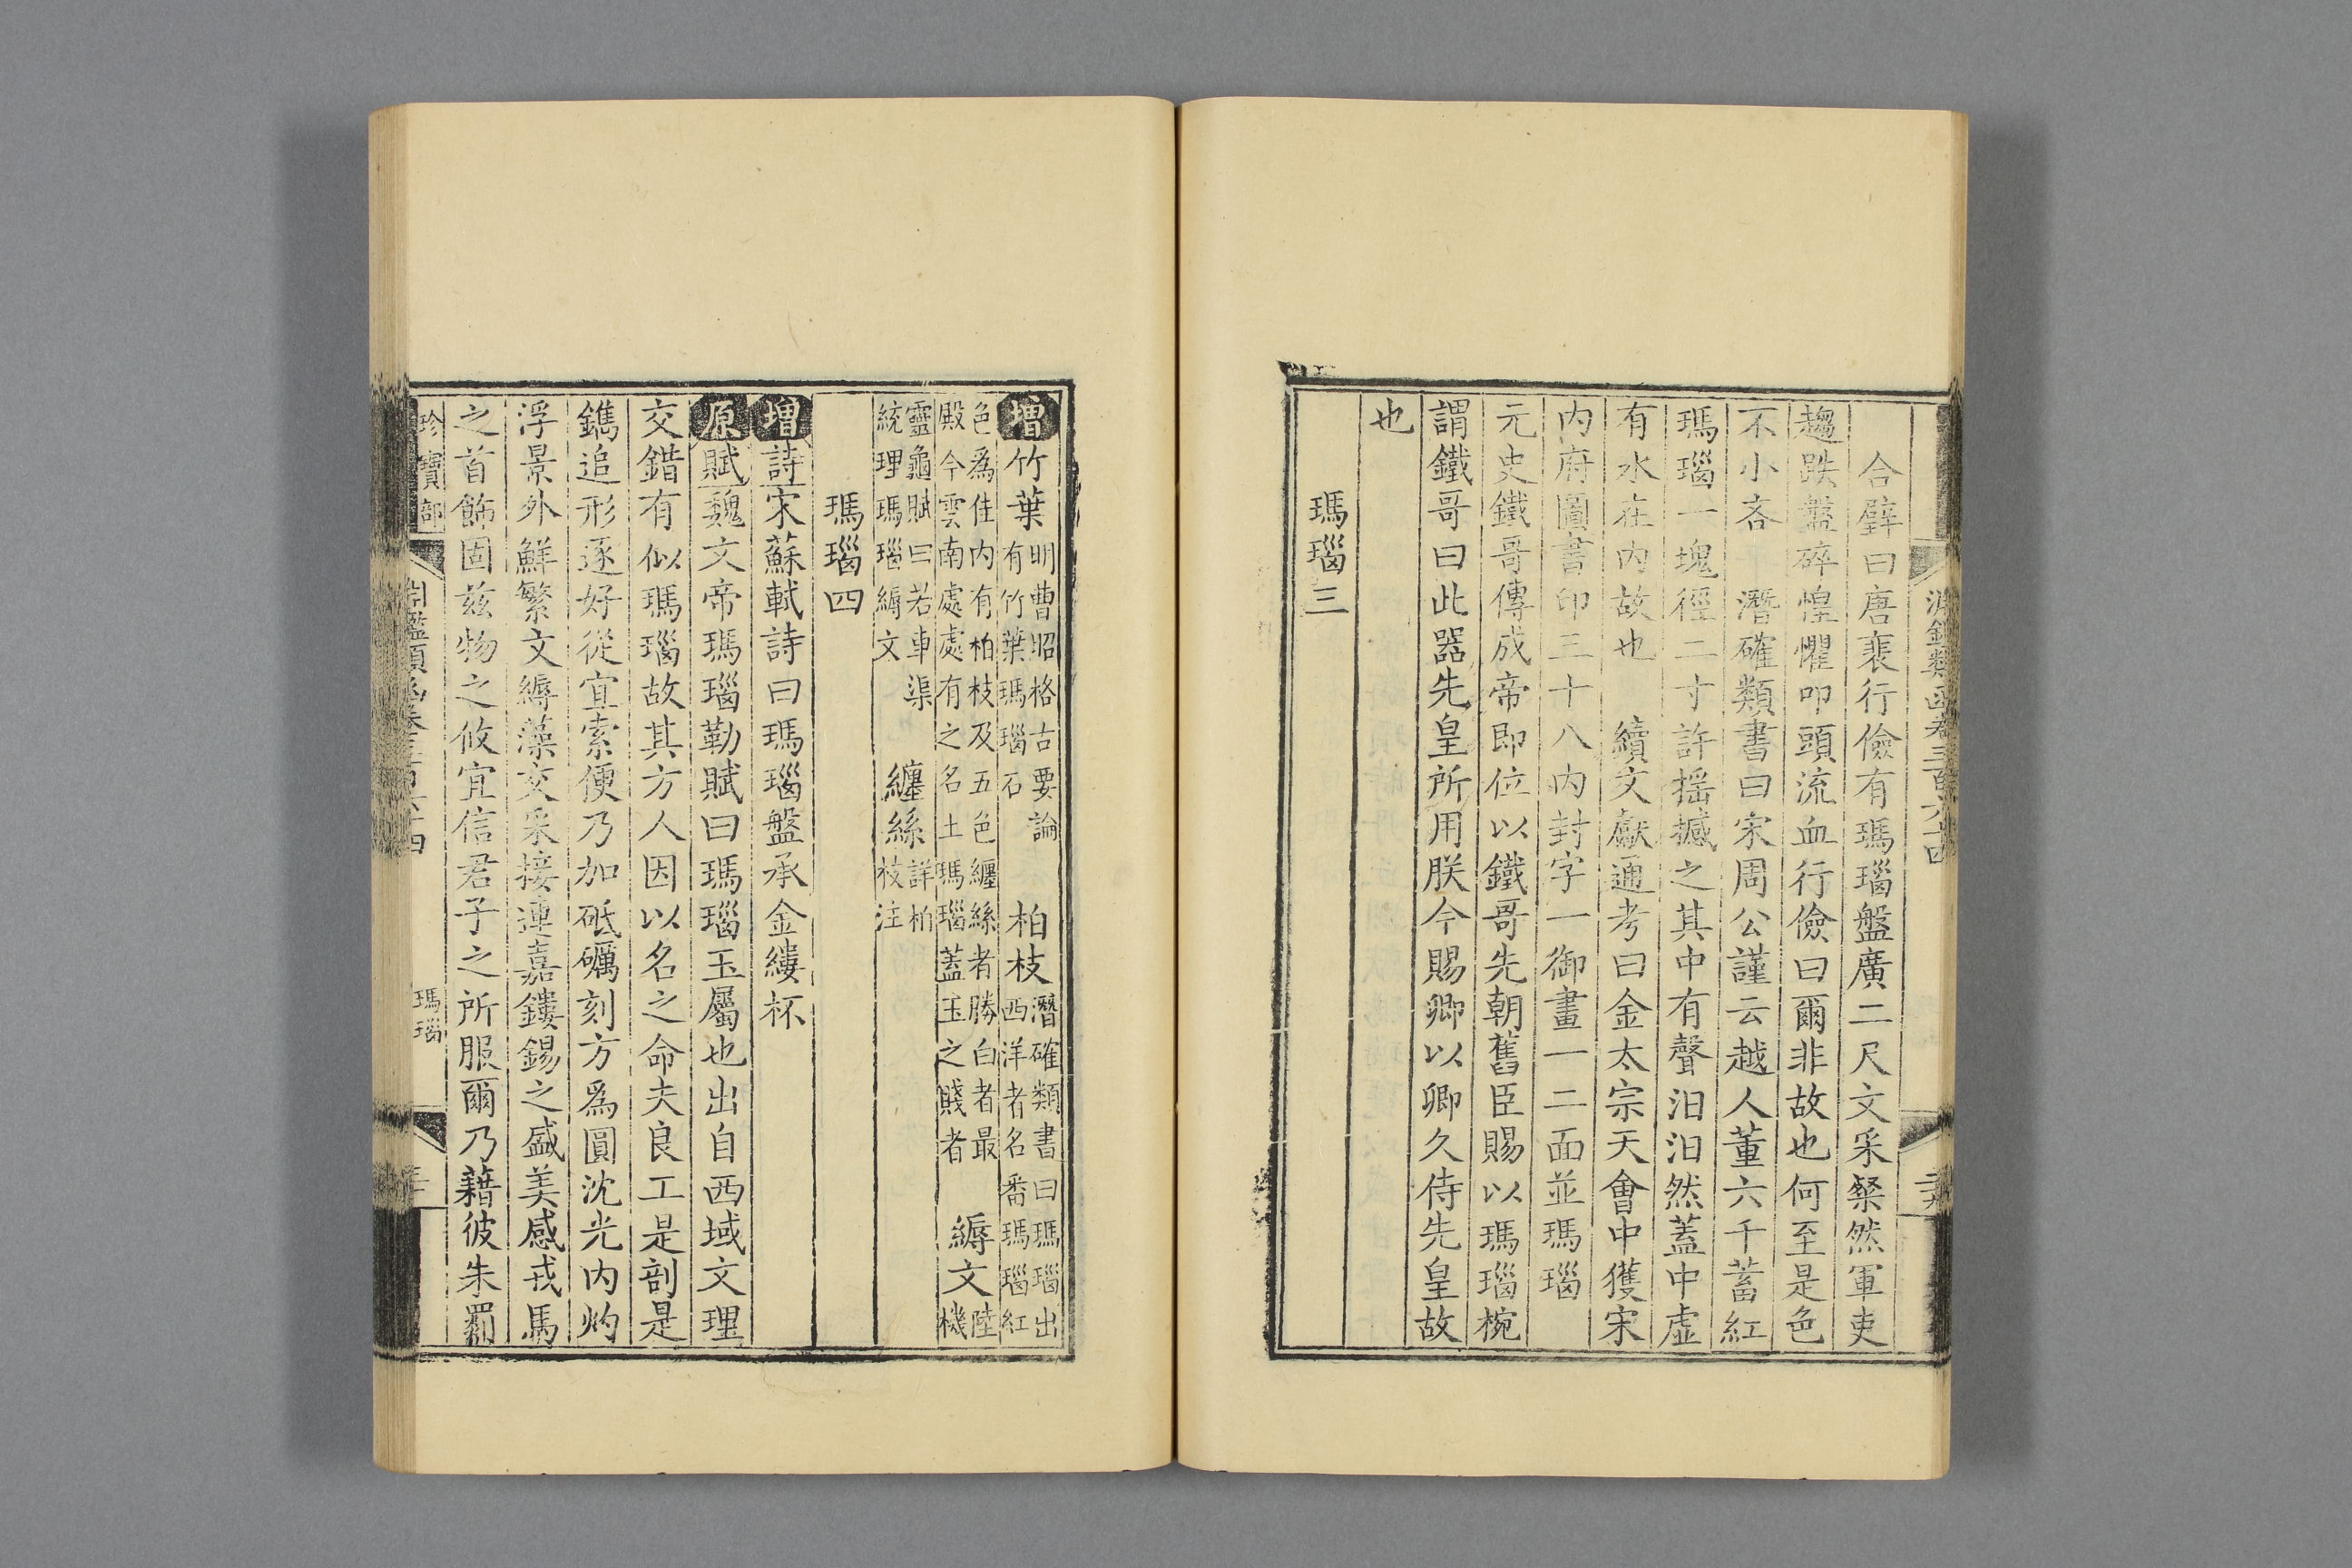 淵鑑類函卷三百六十四
合璧曰唐裴行儉有瑪瑙盤廣二尺文采粲然軍吏
趨跌盤碎惶懼叩頭流血行儉曰爾非故也何至是色
不小吝 潛確類書曰宋周公謹云越人董六千蓄紅
瑪瑙一塊徑二寸許摇撼之其中有聲汩汩然蓋中虛
有水在内故也 續文獻通考曰金太宗天會中獲宋
内府圖書印三十八内封字一御畫一二面並瑪瑙
元史鐵哥傳成帝即位以鐵哥先朝舊臣賜以瑪瑙椀
謂鐵哥曰此器先皇所用朕今賜卿以卿久侍先皇故
也
瑪瑙三
增竹葉明曹昭格古要論有竹葉瑪瑙石 柏枝潛確類書曰瑪瑙出西洋者名番瑪瑙紅
色爲佳内有柏枝及五色纏絲者勝白者最殿今雲南處處有之名土瑪瑙蓋玉之賤者 縟文陸機
靈龜賦曰若車渠統理瑪瑙縟文 纏絲詳柏枝注
瑪瑙四
增詩宋蘇軾詩曰瑪瑙盤承金縷杯
原賦魏文帝瑪瑙勒賦曰瑪瑙玉屬也出自西域文理
交錯有似瑪瑙故其方人因以名之命夫良工是剖是
鐫追形逐好從宜索便乃加砥礪刻方爲圓沈光内灼
浮景外鮮繁文縟藻交采接連嘉鏤錫之盛美感戎馬
之首飾固兹物之攸宜信君子之所服爾乃藉彼朱罽
珍寶部 淵鑑類函卷三百六十四 瑪瑙